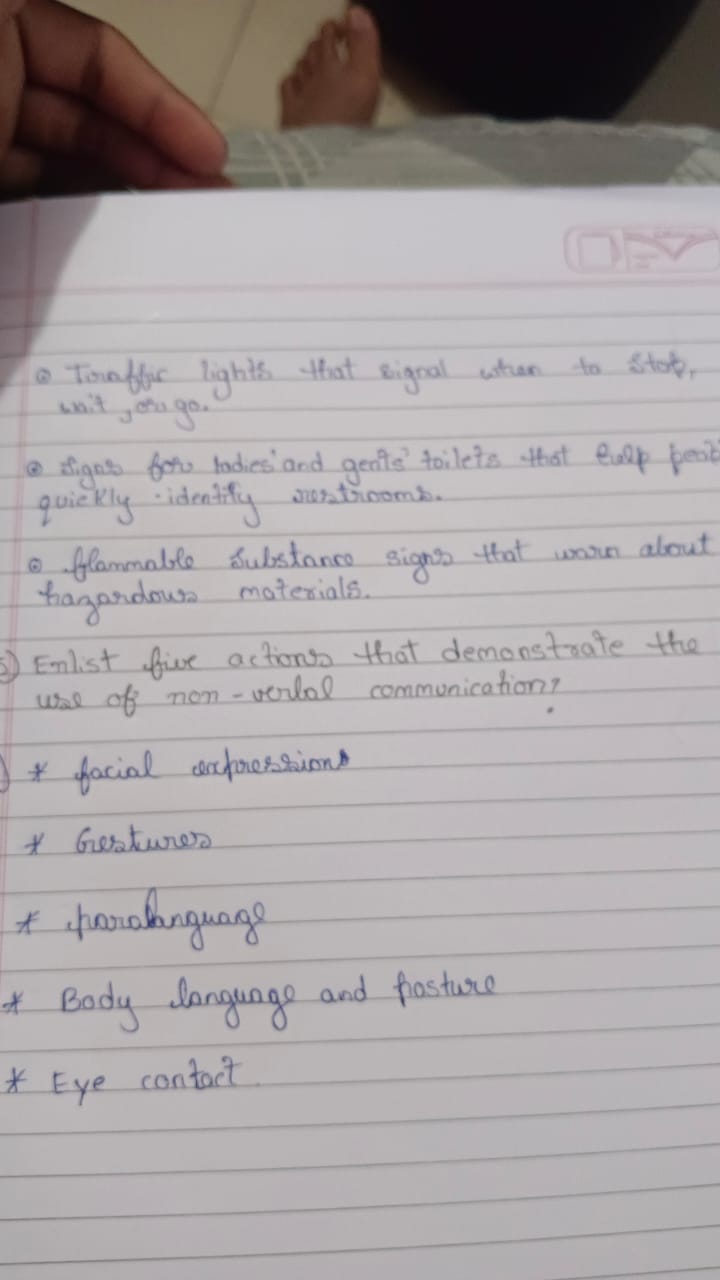 Traffic lights that signal when to stop,
wait, or go.
signs for ladies' and gents' toilets that help
quickly identify restrooms.
flammable substance signs that warn about
hazardous materials.
Enlist five actions that demonstrate the
use of non-verbal communication?
* facial expressions
* Gestures
* paralanguage
* Body language and posture
* Eye contact